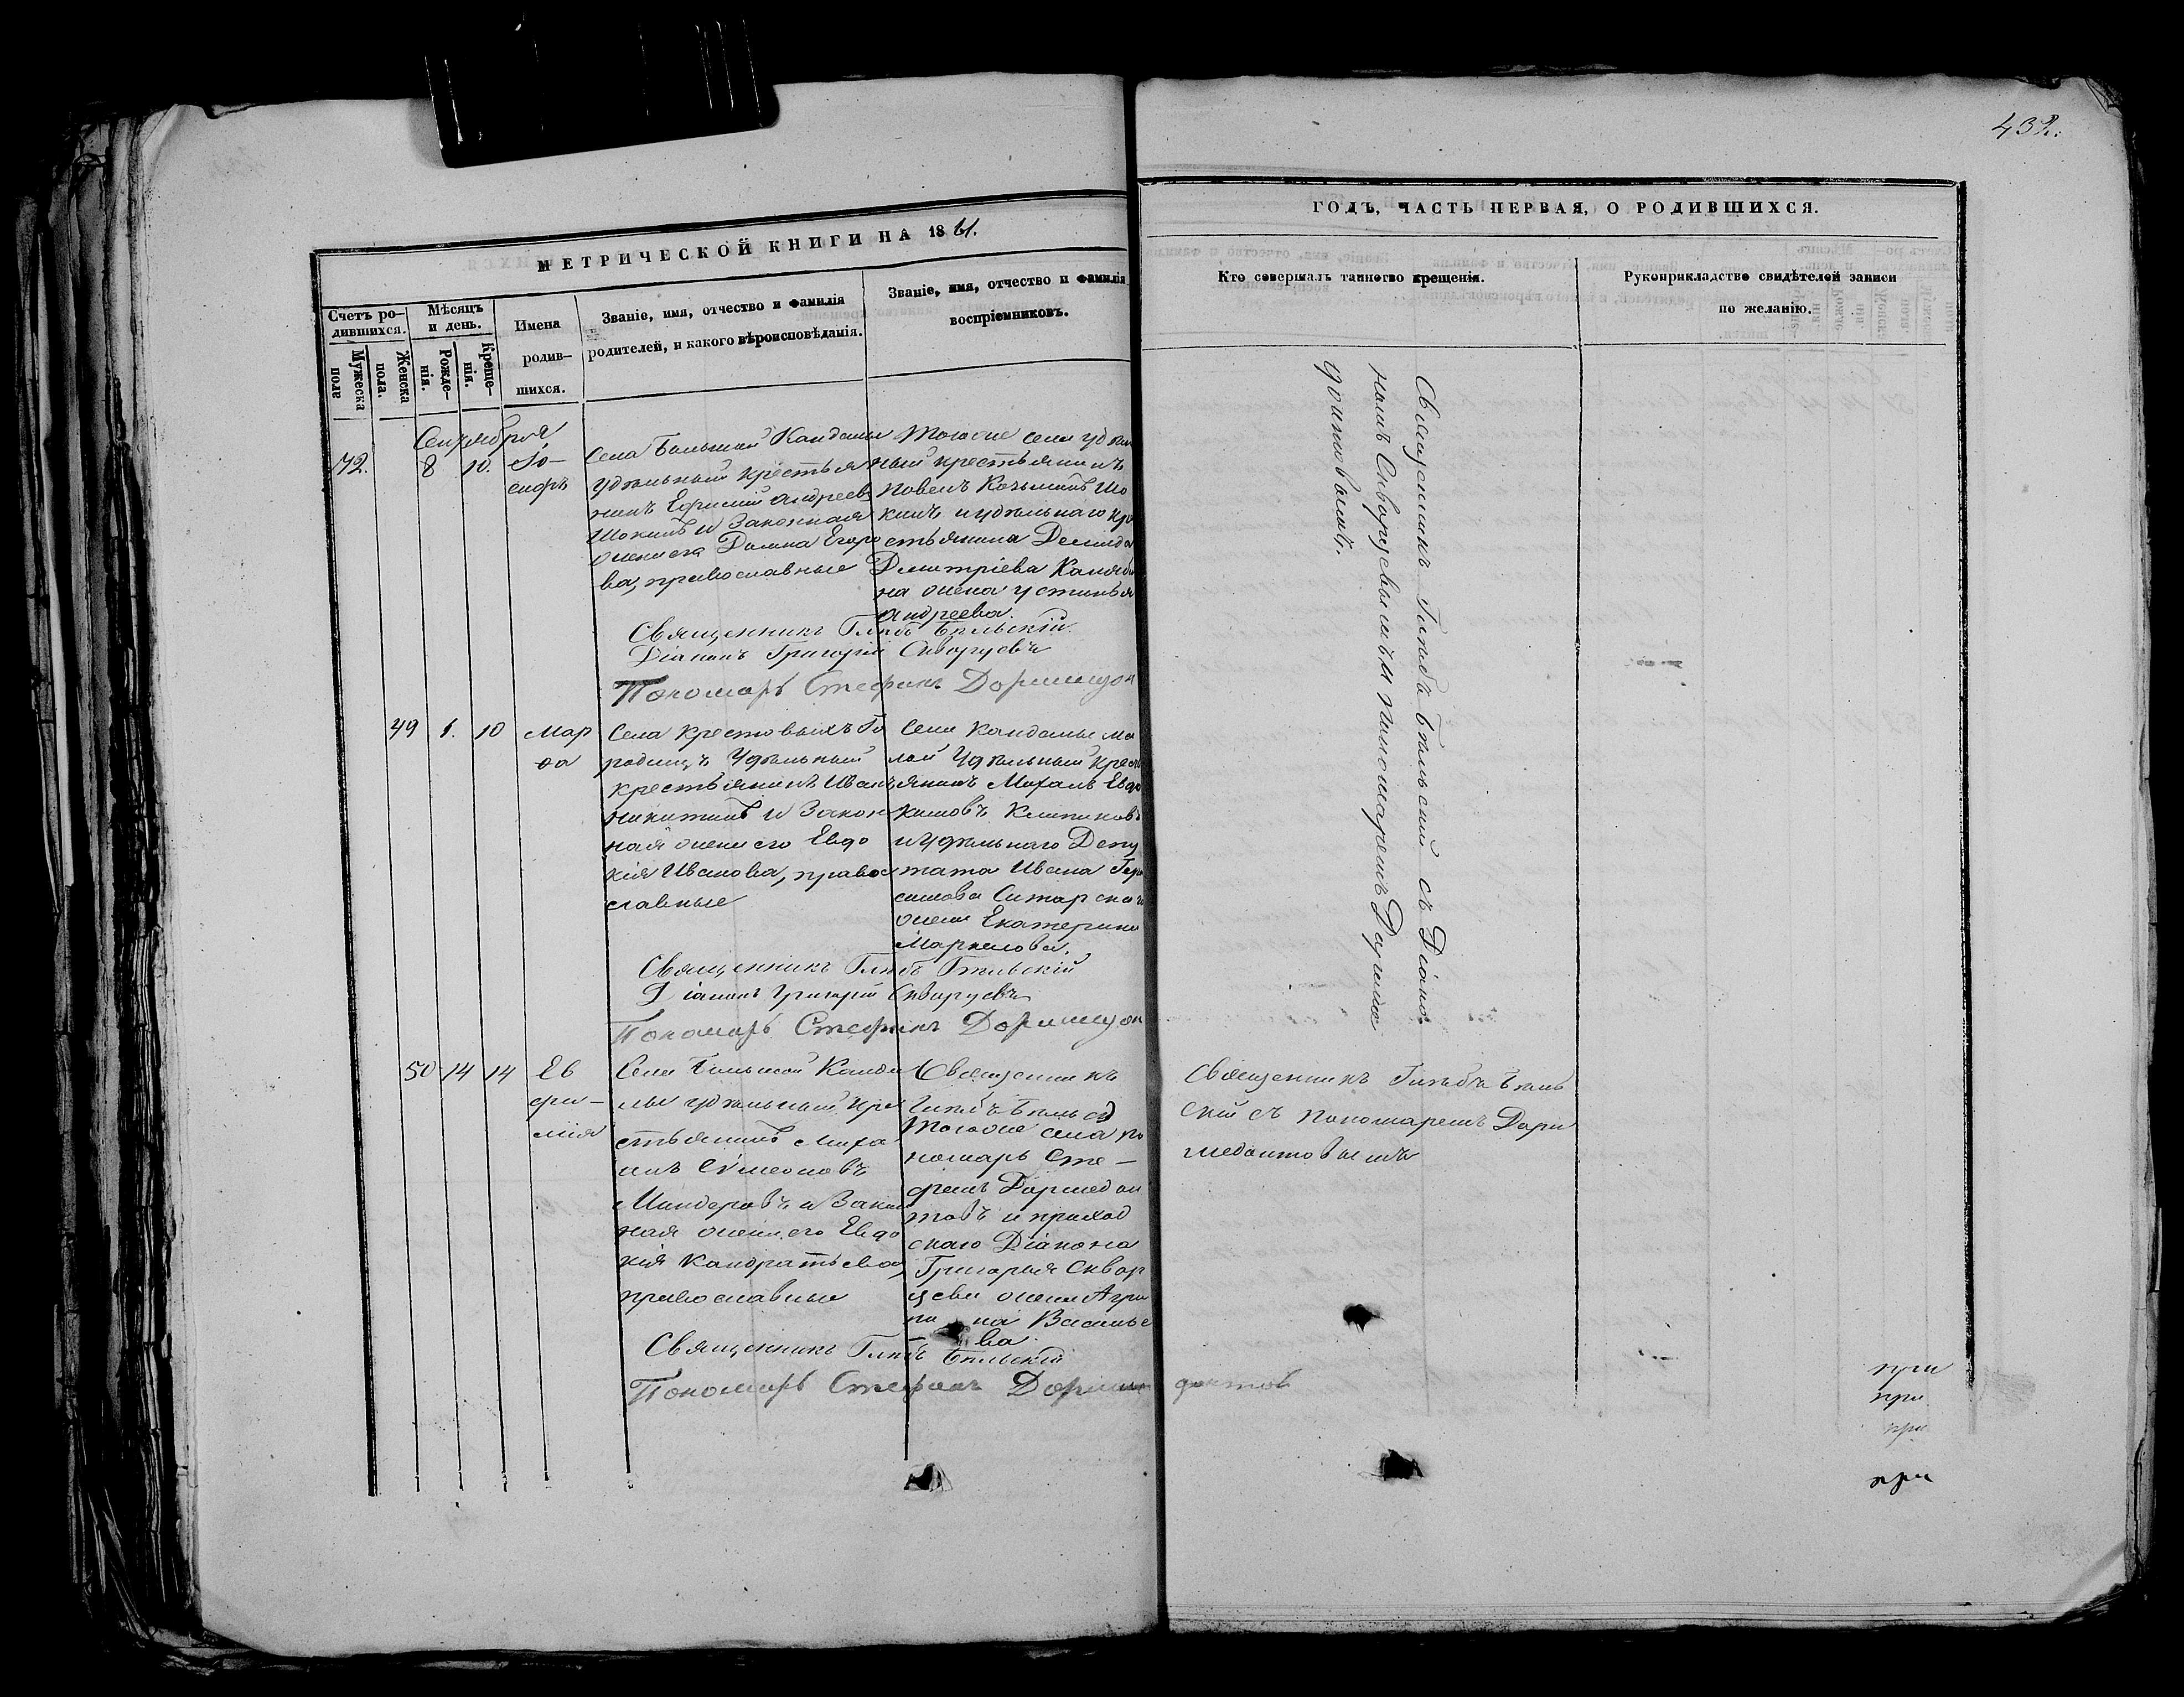 432.
МЕТРИЧЕСКОЙ КНИГИ НА 1861.
Счетъ ро-
дившихся.
Мужеска
пола
Женска
пола.
Мѣсяцъ
и день.
Рожде-
нія.
Креще-
нія.
Имена
родив-
шихся.
Званіе, имя, отчество и фамилія
родителей, и какого вѣроисповѣданія.
Званіе, имя, отчество и фамилія
воспріемниковъ.
ГОДЪ, ЧАСТЬ ПЕРВАЯ, О РОДИВШИХСЯ.
Кто совершалъ таинство крещенія.
Рукоприкладство свидѣтелей записи
по желанію.
Сентября
72. 8 10.
Іо-
сифъ
Села Большой Кандалы
удѣльный крестья
нинъ Ефимій Андреевъ
Шокинъ и Законная
жена его Домна Егоро
ва, православные
Тогоже села удѣль
ный крестьянинъ
Павелъ Козьминъ Шо
кинъ и удѣльнаго кре
стьянина Демида
Дмитріева
на жена Устинья
Андреева.
Священникъ Глѣбъ Бѣльскій.
Діаконъ Григорій Скворцевъ
Пономарь Стефанъ Дормидон
Священникъ Глѣбъ Бѣльскій съ Діако-
номъ Скворцевымъ и пономаремъ Дормидо
донтовымъ.
49 1. 10
Мар
ѳа
Села Крестовыхъ Го
родищъ Удѣльный
крестьянинъ Иванъ
Никитинъ и Закон
ная жена его Евдо
кія Иванова, правос
славные
Села Кандалы Ма
лой Удѣльный крес
янинъ Михаилъ Евдо
кимовъ
и удѣльнаго Депу
тата Ивана Гера
симова
жена Екатерина
Маркелова.
Священникъ Глѣбъ Бѣльскій
Діаконъ Григорій Скворцевъ
Пономарь Стефанъ Дормидон
50 14 14
Ев
фи-
мія
Села Большой Канда
лы удѣльный кре
стьянинъ Миха
илъ Сѵмеоновъ
и Закон
ная жена его Евдо
кія Кандратьева,
православные
Священникъ
Глѣбъ Бѣльск
Тогоже села по
номарь Сте-
фанъ Дормедон
товъ и приход
скаго Діакона
Григорья Сквор
цева жена Агри
пина Василье
ва.
Священникъ Глѣбъ Бѣль
скій съ пономаремъ Дор
медонтовымъ
Священникъ Глѣбъ Бѣльскій
Пономарь Стефанъ Дорми донтов
при
при
при
при